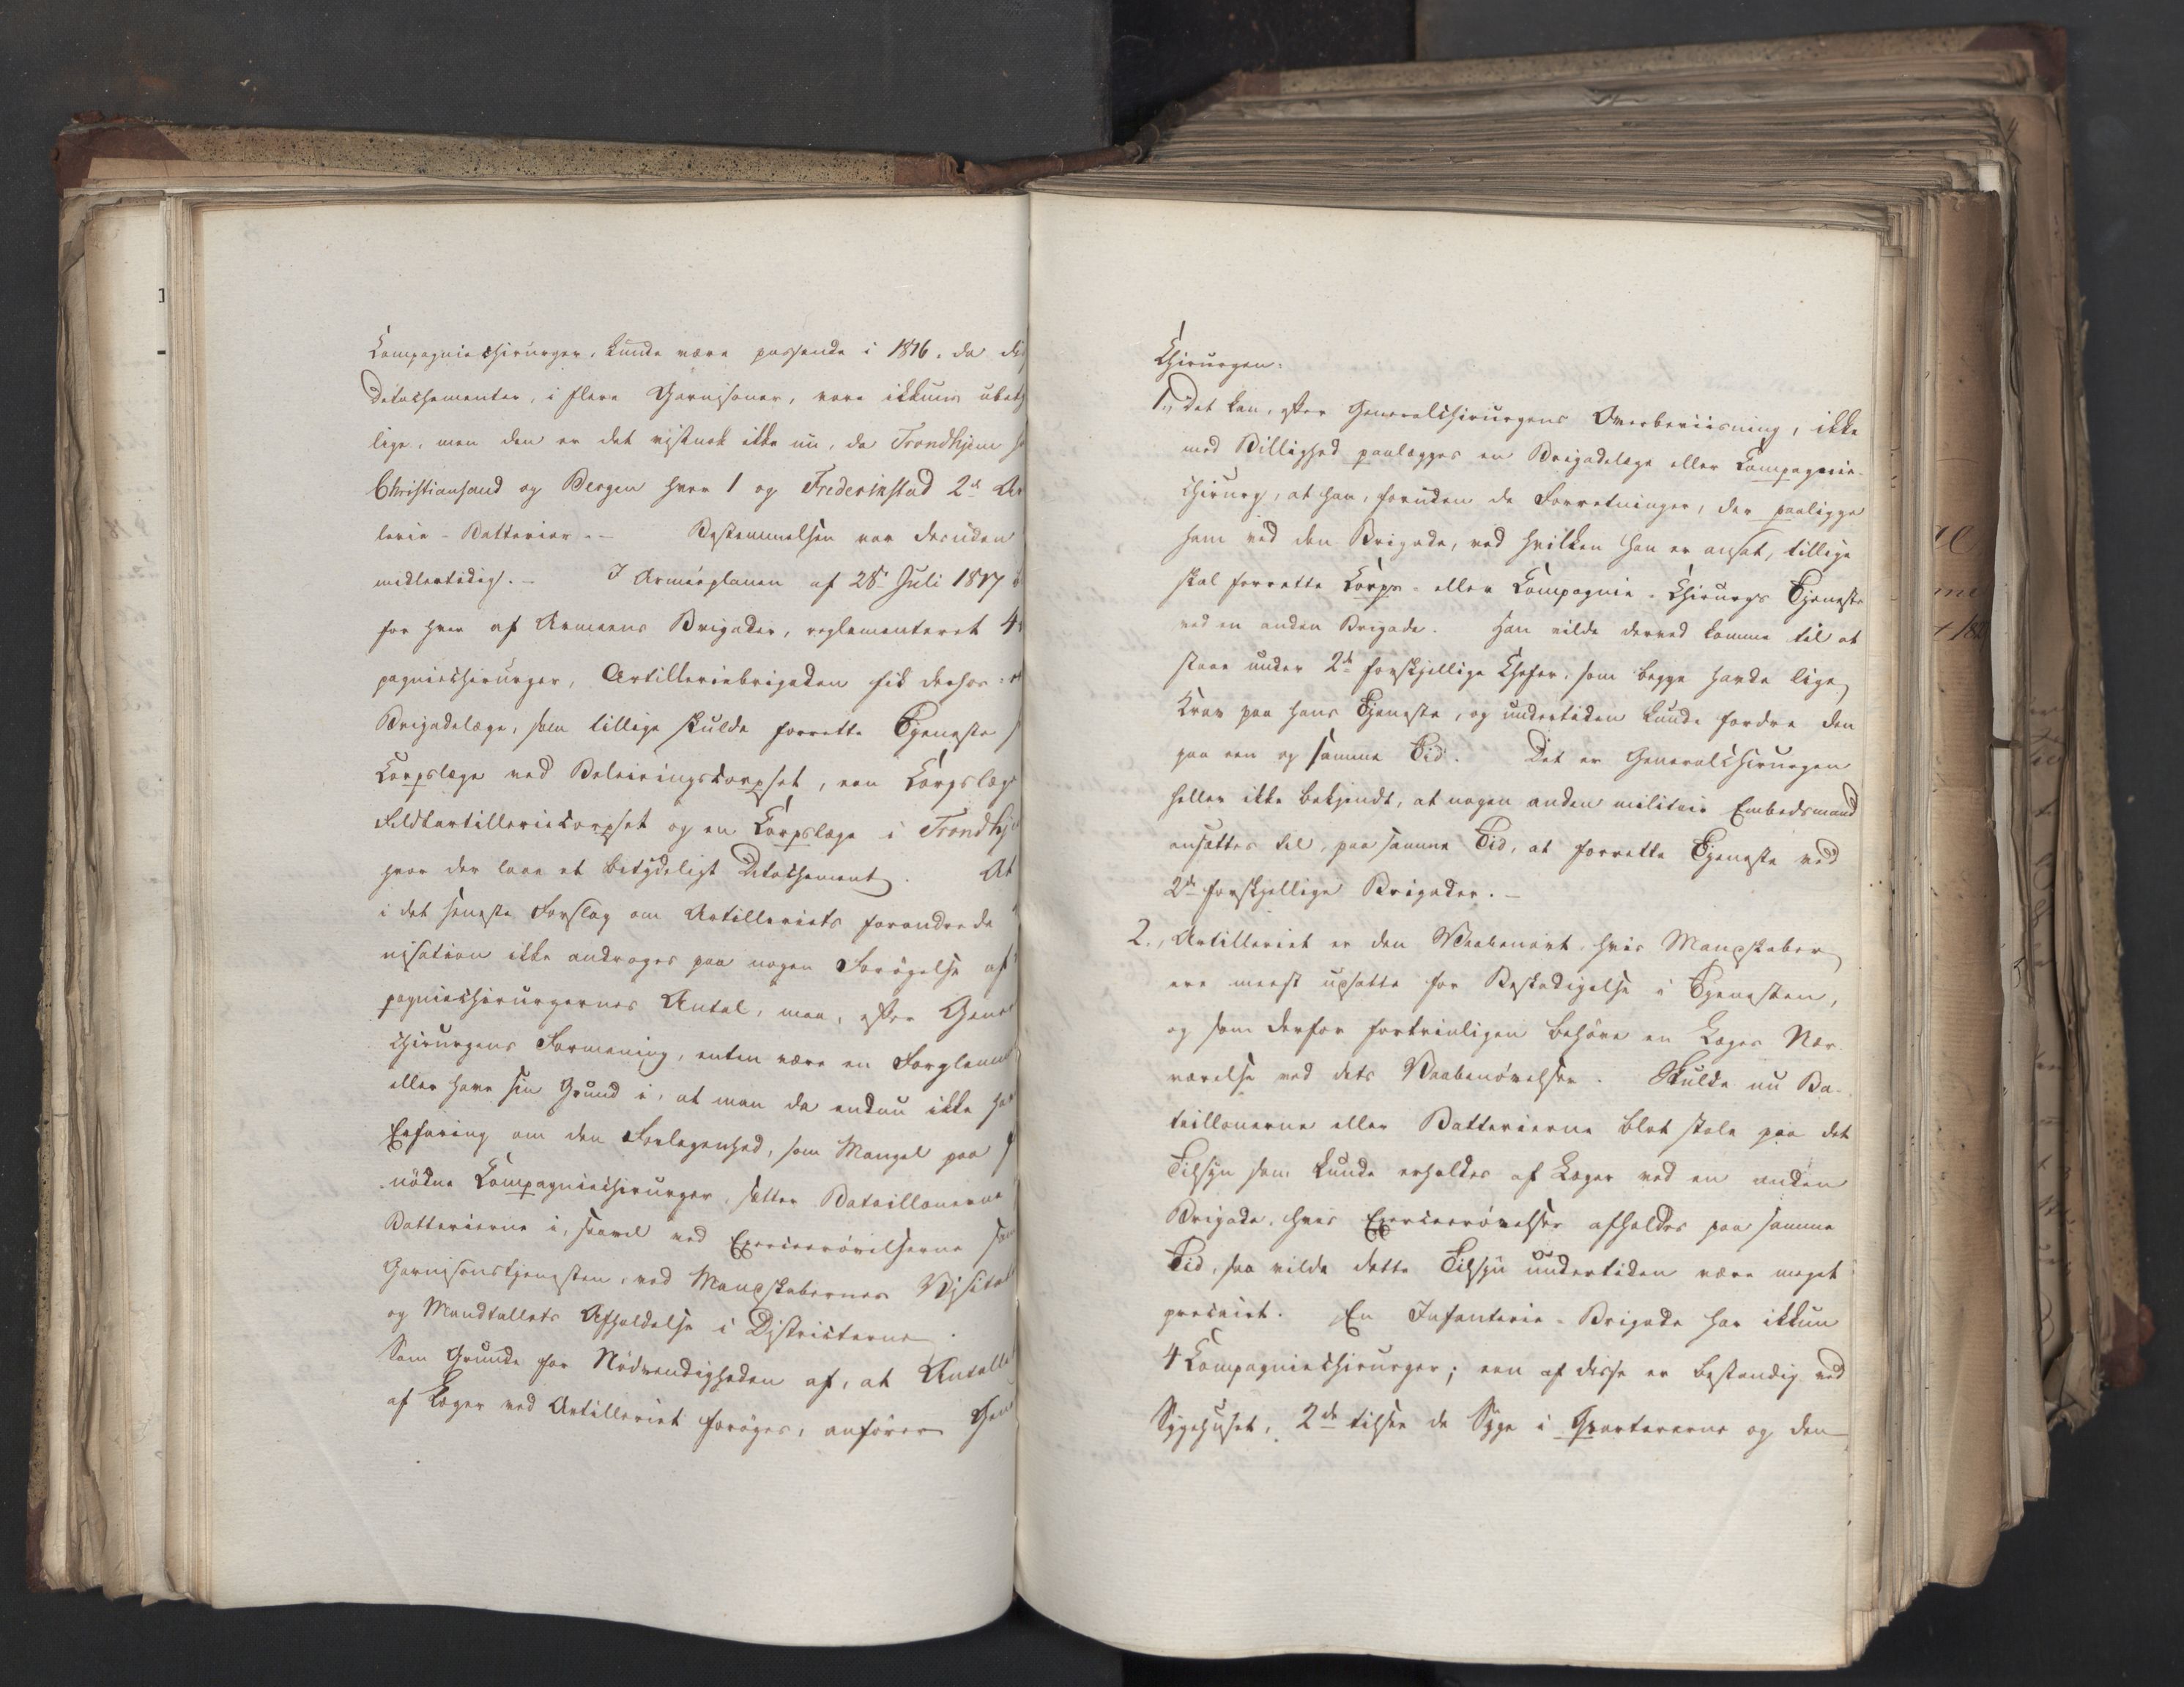 Compagniechirurger, kunde være passende i 1816, da dis
Detachementer, i flere Garnisoner, vare ikkun ubety
lige, men den er det vistnok ikke nu, da Trondhjem
Christiansand og Bergen hver 1 og Frederikstad 2de Ar
lerie-Batterier. – Bestemmelsen var desuden
midlertidig. – I Arméeplanen af 28de Juli 1817
for hver af Armeens Brigader, reglementeret 4
pagniechirurger, Artilleriebrigaden fik derhos
Brigadelæge, som tillige skulde forrette Tjeneste
Corpslæge ved Beleiringscorpset, een Corpslæge
Feldtartilleriecorpset og en Corpslæge i Trondhje
hvor der laae et betydeligt Detachement. At
i det seneste Forslag om Artilleriets forandrede
nisation ikke androges paa nogen Forøgelse af
pagniechirurgernes Antal, maa, efter Gene
chirurgens Formening, enten være en Forglem
eller have sin Grund i, at man da endnu ikke ha
Erfaring om den Forlegenhed, som Mangel paa
nødne Compagniechirurger, sætter Batallionerne
Batterierne i, saavel ved Exerceerøvelserne som
Garnisonstjenesten, ved Mandskabernes Visitat
og Mandtallets Afholdelse i Districterne.
Som Grunde for Nødvendigheden af, at Antallet
af Læger ved Artilleriet forøges, anfører Gene
Chirurgen:
1., Det kan, efter Generalchirurgens Overbeviisning, ikke
med Billighed paalægges en Brigadelæge eller Compagnie-
chirurg, at han, foruden de Forretninger, der paaligge
ham ved den Brigade, ved hvilken han er ansat, tillige
skal forrette Corps- eller Compagnie-Chirurgs Tjeneste
ved en anden Brigade. Han vilde derved komme til at
staae under 2de forskjellige Chefer, som begge havde lige
Krav paa hans Tjeneste, og undertiden kunde fordre den
paa een og samme Tid. Det er Generalchirurgen
heller ikke bekjendt, at nogen anden militair Embedsmand
ansættes til, paa samme Tid, at forrette Tjeneste ved
2de forskjellige Brigader. –
2., Artilleriet er den Vaabenart, hvis Mandskaber
ere meest udsatte for Beskadigelse i Tjenesten,
og som derfor fortrinligen behøve en Læges Nær-
værelse ved dets Vaabenøvelser. Skulde nu Ba-
taillonerne eller Batterierne blot stole paa det
Tilsyn som kunde erholdes af Læger ved en anden
Brigade, hvis Exerceerøvelser afholdes paa samme
Tid, saa vilde dette Tilsyn undertiden være meget
precairt. En Infanterie-Brigade har ikkun
4 Compagniechirurger; een af disse er bestandig ved
Sygehuset, 2de tilsee de Syge i Qvartererne og den